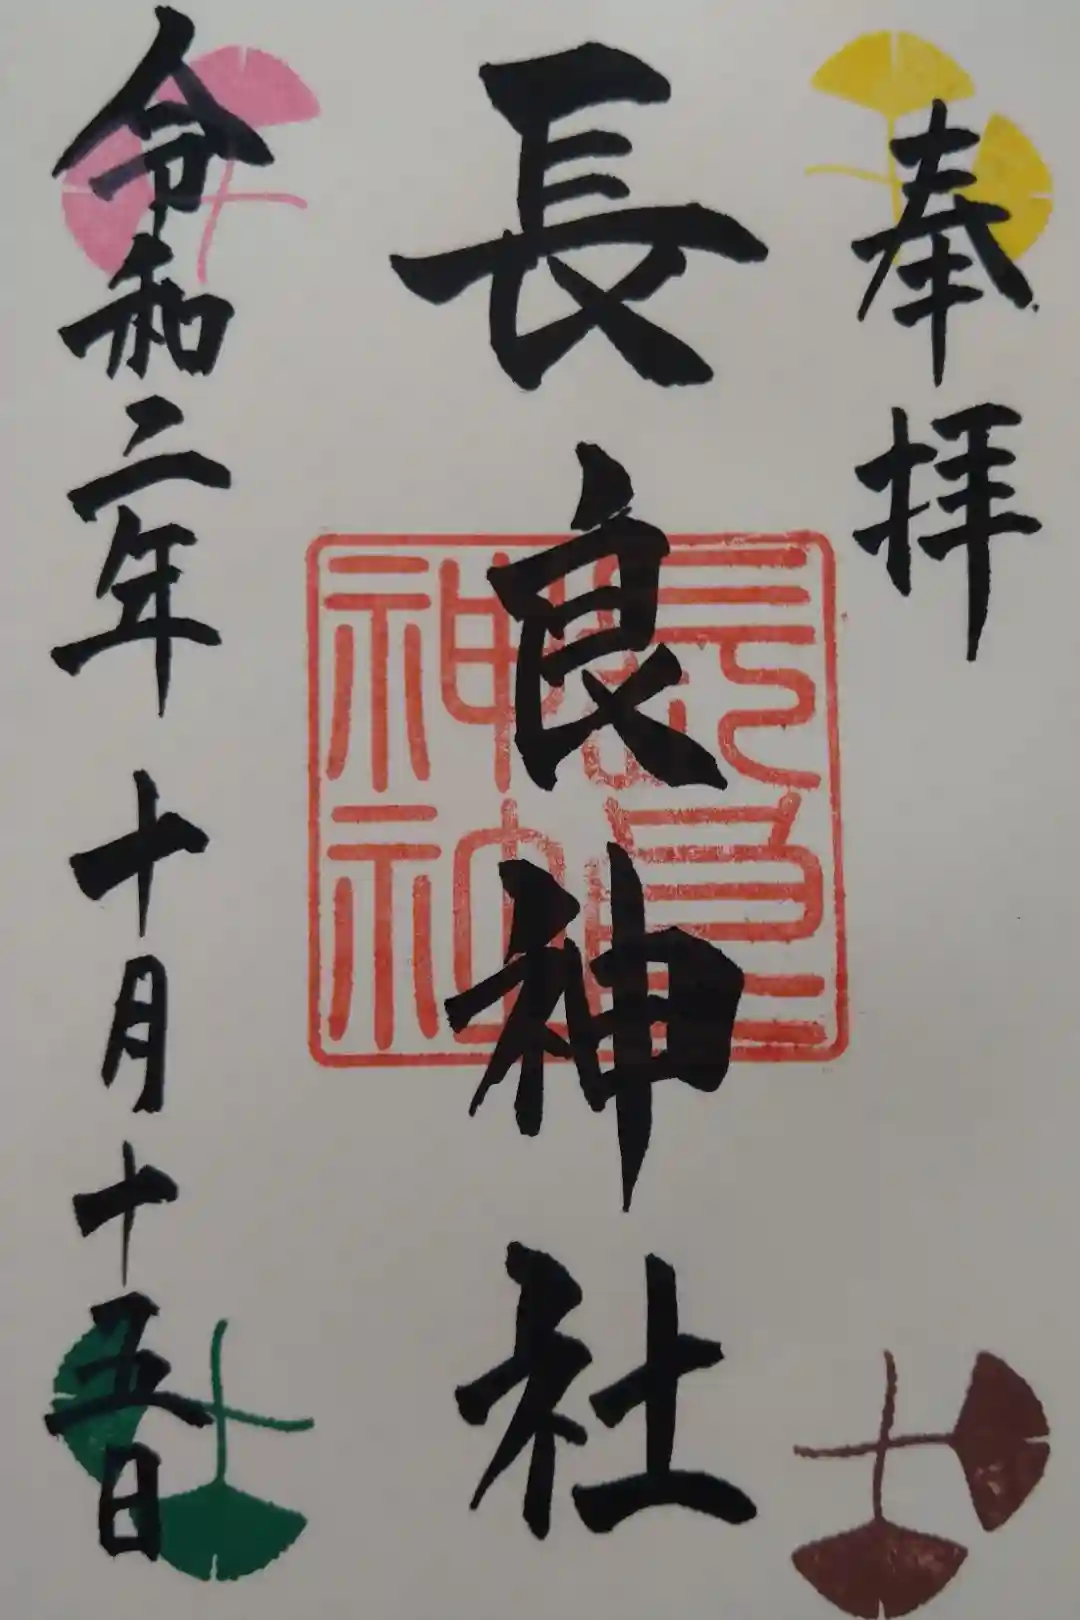 奉拝
長良神社
長良神社
令和二年十月十五日